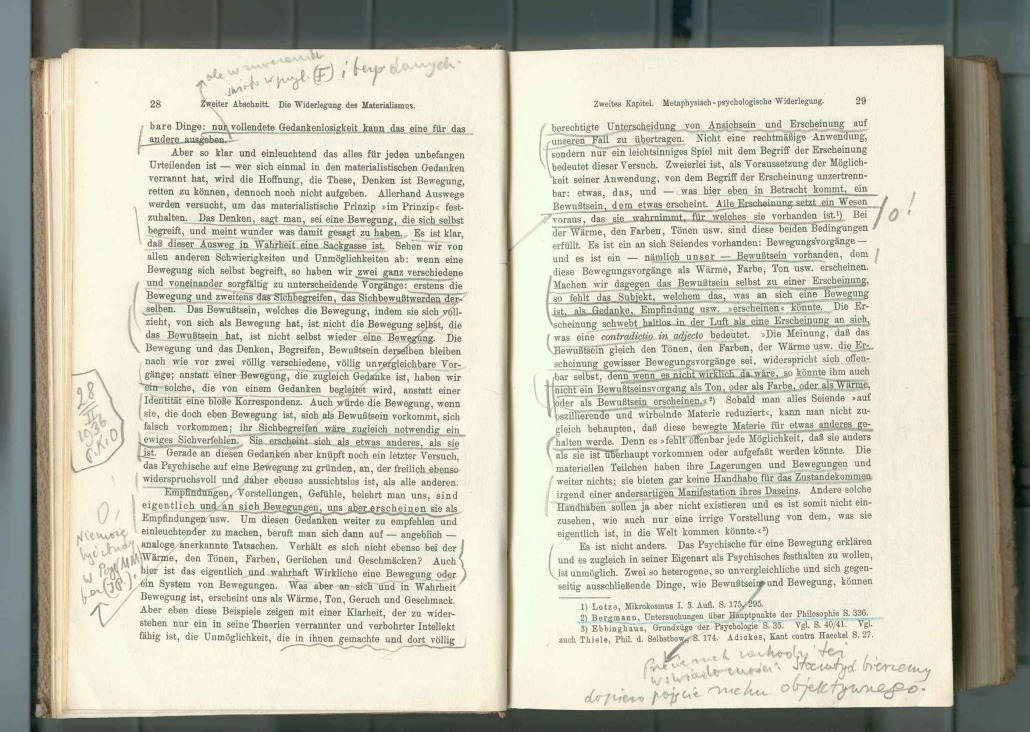 28 Zweiter Abschnitt. Die Widerlegung des Materialismus.
bare Dinge: nur vollendete Gedankenlosigkeit kann das eine für das
andere ausgeben.
Aber so klar und einleuchtend das alles für jeden unbefangen
Urteilenden ist — wer sich einmal in den materialistischen Gedanken
verrannt hat, wird die Hoffnung, die These, Denken ist Bewegung,
retten zu können, dennoch noch nicht aufgeben. Allerhand Auswege
werden versucht, um das materialistische Prinzip »im Prinzip« fest-
zuhalten. Das Denken, sagt man, sei eine Bewegung, die sich selbst
begreift, und meint wunder was damit gesagt zu haben. Es ist klar,
daß dieser Ausweg in Wahrheit eine Sackgasse ist. Sehen wir von
allen anderen Schwierigkeiten und Unmöglichkeiten ab: wenn eine
Bewegung sich selbst begreift, so haben wir zwei ganz verschiedene
und voneinander sorgfältig zu unterscheidende Vorgänge: erstens die
Bewegung und zweitens das Sichbegreifen, das Sichbewußtwerden der-
selben. Das Bewußtsein, welches die Bewegung, indem sie sich voll-
zieht, von sich als Bewegung hat, ist nicht die Bewegung selbst, die
das Bewußtsein hat, ist nicht selbst wieder eine Bewegung. Die
Bewegung und das Denken, Begreifen, Bewußtsein derselben bleiben
nach wie vor zwei völlig verschiedene, völlig unvergleichbare Vor-
gänge; anstatt einer Bewegung, die zugleich Gedanke ist, haben wir
ein solche, die von einem Gedanken begleitet wird, anstatt einer
Identität eine bloße Korrespondenz. Auch würde die Bewegung, wenn
sie, die doch eben Bewegung ist, sich als Bewußtsein vorkommt, sich
falsch vorkommen; ihr Sichbegreifen wäre zugleich notwendig ein
ewiges Sichverfehlen. Sie erscheint sich als etwas anderes, als sie
ist. Gerade an diesen Gedanken aber knüpft noch ein letzter Versuch,
das Psychische auf eine Bewegung zu gründen, an, der freilich ebenso
widerspruchsvoll und daher ebenso aussichtslos ist, als alle anderen.
Empfindungen, Vorstellungen, Gefühle, belehrt man uns, sind
eigentlich und an sich Bewegungen, uns aber erscheinen sie als
Empfindungen usw. Um diesen Gedanken weiter zu empfehlen und
einleuchtender zu machen, beruft man sich dann auf — angeblich —
analoge anerkannte Tatsachen. Verhält es sich nicht ebenso bei der
Wärme, den Tönen, Farben, Gerüchen und Geschmäcken? Auch
hier ist das eigentlich und wahrhaft Wirkliche eine Bewegung oder
ein System von Bewegungen. Was aber an sich und in Wahrheit
Bewegung ist, erscheint uns als Wärme, Ton, Geruch und Geschmack.
Aber eben diese Beispiele zeigen mit einer Klarheit, der zu wider-
stehen nur ein in seine Theorien verrannter und verbohrter Intellekt
fähig ist, die Unmöglichkeit, die in ihnen gemachte und dort völlig
28
1936
Zweites Kapitel. Metaphysisch-psychologische Widerlegung. 29
berechtigte Unterscheidung von Ansichsein und Erscheinung auf
unseren Fall zu übertragen. Nicht eine rechtmäßige Anwendung,
sondern nur ein leichtsinniges Spiel mit dem Begriff der Erscheinung
bedeutet dieser Versuch. Zweierlei ist, als Voraussetzung der Möglich-
keit seiner Anwendung, von dem Begriff der Erscheinung unzertrenn-
bar: etwas, das, und — was hier eben in Betracht kommt, ein
Bewußtsein, dem etwas erscheint. Alle Erscheinung setzt ein Wesen
voraus, das sie wahrnimmt, für welches sie vorhanden ist.1) Bei
der Wärme, den Farben, Tönen usw. sind diese beiden Bedingungen
erfüllt. Es ist ein an sich Seiendes vorhanden: Bewegungsvorgänge —
und es ist ein — nämlich unser — Bewußtsein vorhanden, dem
diese Bewegungsvorgänge als Wärme, Farbe, Ton usw. erscheinen.
Machen wir dagegen das Bewußtsein selbst zu einer Erscheinung,
so fehlt das Subjekt, welchem das, was an sich eine Bewegung
ist, als Gedanke, Empfindung usw. »erscheinen« könnte. Die Er-
scheinung schwebt haltlos in der Luft als eine Erscheinung an sich,
was eine contradictio in adjecto bedeutet. »Die Meinung, daß das
Bewußtsein gleich den Tönen, den Farben, der Wärme usw. die Er-
scheinung gewisser Bewegungsvorgänge sei, widerspricht sich offen-
bar selbst, denn wenn es nicht wirklich da wäre, so könnte ihm auch
nicht ein Bewußtseinsvorgang als Ton, oder als Farbe, oder als Wärme,
oder als Bewußtsein erscheinen.«2) Sobald man alles Seiende »auf
oszillierende und wirbelnde Materie reduziert«, kann man nicht zu-
gleich behaupten, daß diese bewegte Materie für etwas anderes ge-
halten werde. Denn es »fehlt offenbar jede Möglichkeit, daß sie anders
als sie ist überhaupt vorkommen oder aufgefaßt werden könnte. Die
materiellen Teilchen haben ihre Lagerungen und Bewegungen und
weiter nichts; sie bieten gar keine Handhabe für das Zustandekommen
irgend einer andersartigen Manifestation ihres Daseins. Andere solche
Handhaben sollen ja aber nicht existieren und es ist somit nicht ein-
zusehen, wie auch nur eine irrige Vorstellung von dem, was sie
eigentlich ist, in die Welt kommen könnte.«3)
Es ist nicht anders. Das Psychische für eine Bewegung erklären
und es zugleich in seiner Eigenart als Psychisches festhalten zu wollen,
ist unmöglich. Zwei so heterogene, so unvergleichliche und sich gegen-
seitig ausschließende Dinge, wie Bewußtsein und Bewegung, können
1) Lotze, Mikrokosmus I. 3. Aufl. S. 175, 295.
2) Bergmann, Untersuchungen über Hauptpunkte der Philosophie S. 336.
3) Ebbinghaus, Grundzüge der Psychologie S. 35. Vgl. S. 40/41. Vgl.
auch Thiele, Phil. d. Selbstbew. S. 174. Adickes, Kant contra Haeckel S. 27.